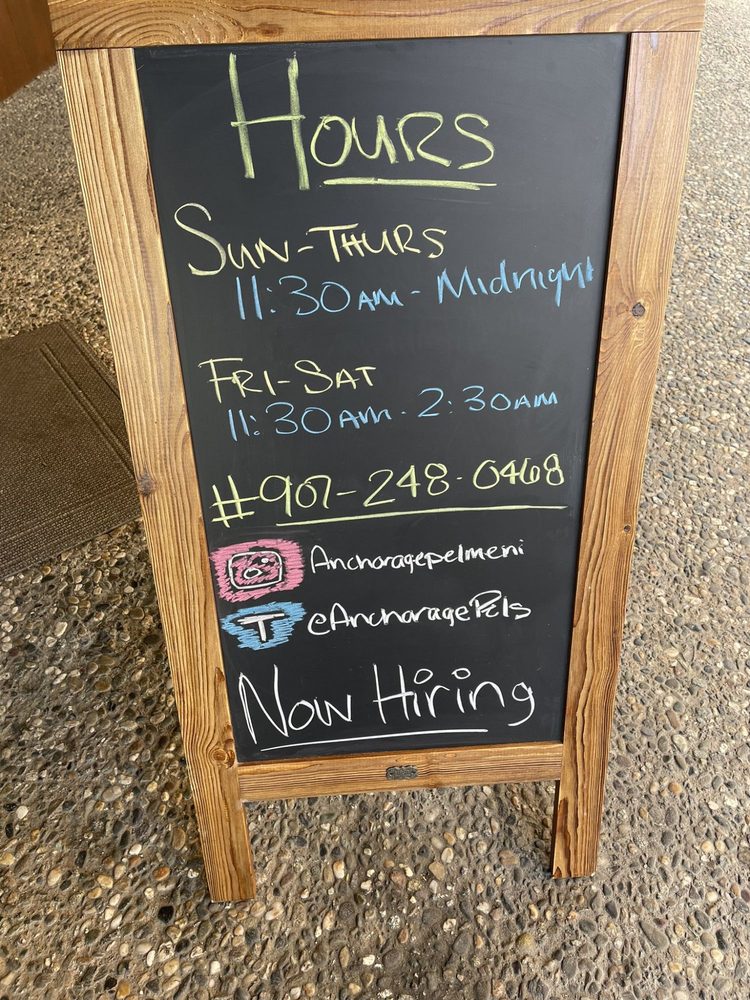 Hours
Sun-Thurs
11:30am - Midnight
Fri-Sat
11:30am - 2:30am
#907-248-0468
Anchoragepelmeni
T @AnchoragePels
Now Hiring